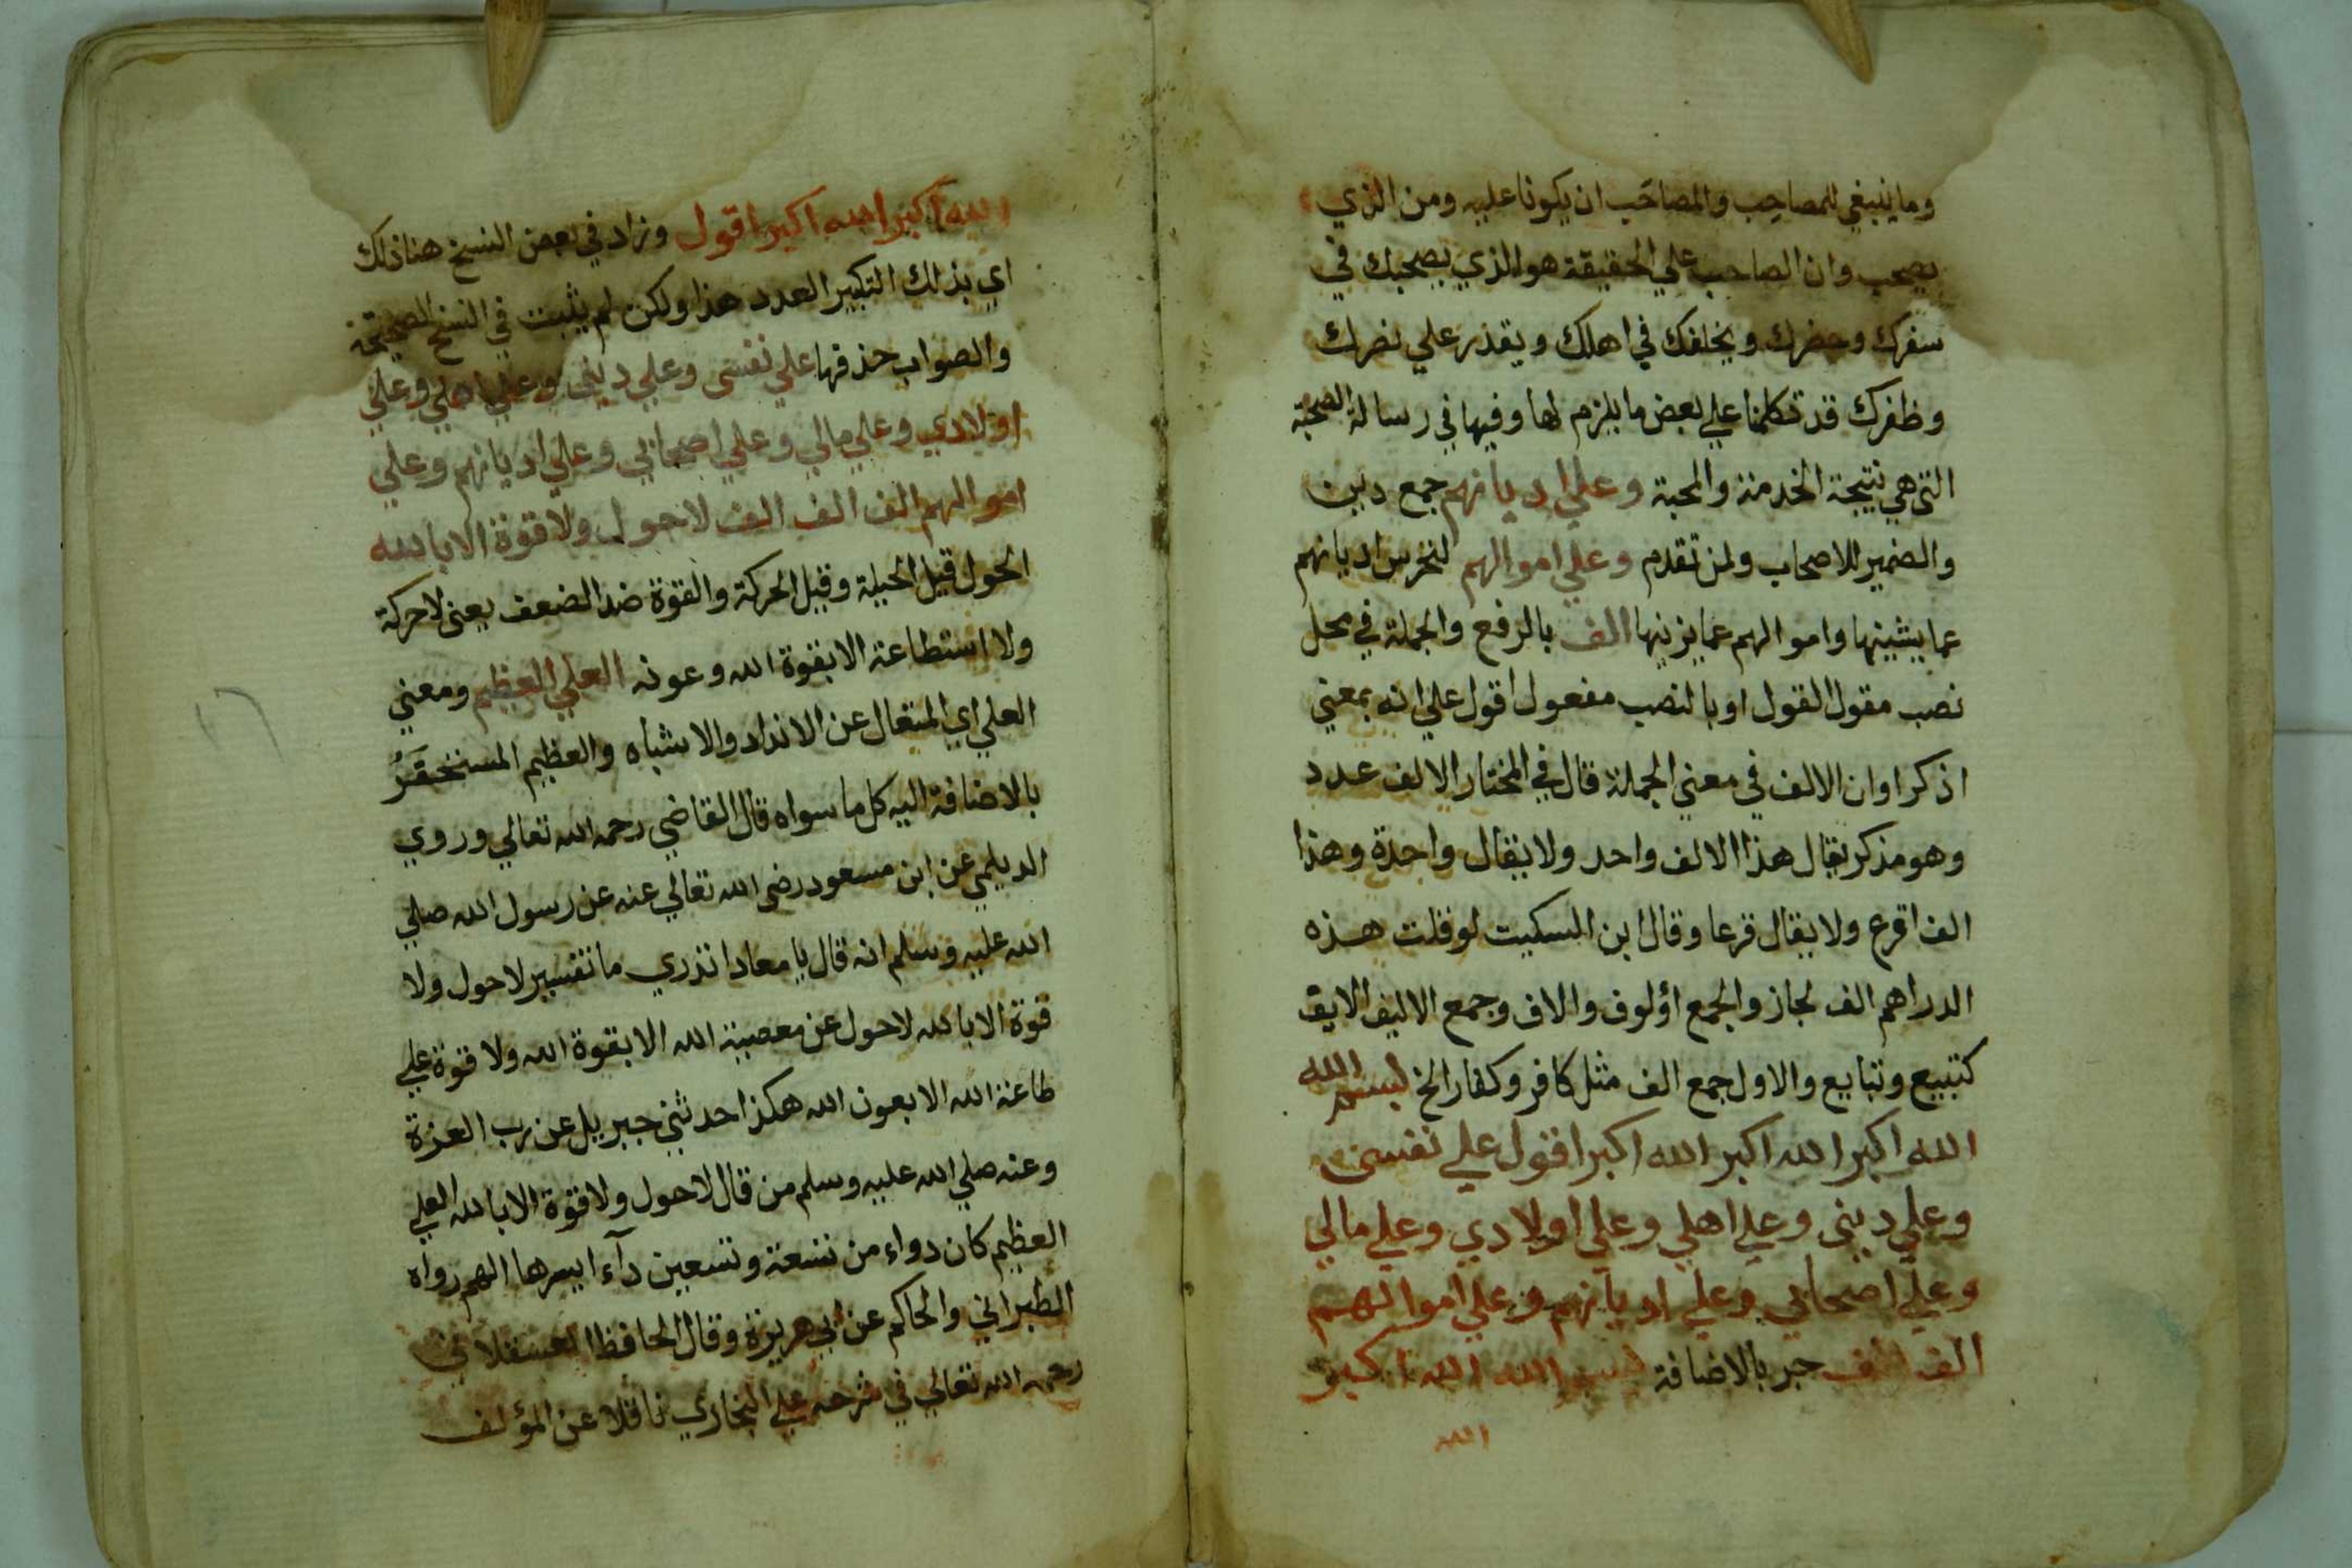 وما ينبغي للمصاحِب والمصاحَب ان يكونا عليه ومن الذي
يصحب وان الصاحب علي الحقيقة هو الذي يصحبك في
سفرك وحضرك ويخلفك في اهلك ويقدر علي نصرك
وظفرك قد تكلمنا علي بعض ما يلزم لها وفيها في رسالة الصحبة
التي هي نتيجة الخدمة والمحبة وعلي اديانهم جمع دين
والضمير للاصحاب ولمن تقدم وعلي اموالهم لنحرس اديانهم
عما يشينها واموالهم عما يزينها الف بالرفع والجملة في محل
نصب مقول القول او بالنصب مفعول اقول علي انه بمعني
اذكر اوان الالف في معني الجملة قال في المختار الالف عدد
وهو مذكر يقال هذا الالف واحد ولا يقال واحدة وهذا
الف اقرع ولا يقال قرعا وقال ابن السكيت لو قلت هذه
الدراهم الف لجاز والجمع اؤلوف والاف وجمع الاليف الايق
كتبيع وتبايع والاول جمع الف مثل كافر وكفار الخ بسم الله
الله اكبر الله اكبر الله اكبر اقول علي نفسي
وعلي ديني وعلي اهلي وعلي اولادي وعلي مالي
وعلي اصحابي وعلي اديانهم وعلي اموالهم
الف الف جر بالاضافة بسم الله الله اكبر
الله
الله اكبر الله اكبر اقول وزاد في بعض النسخ هنا ذلك
اي بذلك التكبير العدد هذا ولكن لم يثبت في النسخ الصحيحة
والصواب حذفها علي نفسي وعلي ديني وعلي اهلي وعلي
اولادي وعلي مالي وعلي اصحابي وعلي اديانهم وعلي
اموالهم الف الف الف لا حول ولا قوة الا بالله
الحول قيل الحيلة وقيل الحركة والقوة ضد الضعف يعني لا حركة
ولا استطاعة الا بقوة الله وعونه العلي العظيم ومعني
العلي اي المتعال عن الانداد والاشباه والعظيم المستحقَرُ
بالاضافة اليه كل ما سواه قال القاضي رحمه الله تعالي وروي
الديلمي عن ابن مسعود رضي الله تعالي عنه عن رسول الله صلي
الله عليه وسلم انه قال يا معاد اتدري ما تفسير لا حول ولا
قوة الا بالله لا حول عن معصية الله الا بقوة الله ولا قوة علي
طاعة الله الا بعون الله هكذا حدثني جبريل عن رب العزة
وعنه صلي الله عليه وسلم من قال لا حول ولا قوة الا بالله العلي
العظيم كان دواء من تسعة وتسعين دآءا ايسرها الهم رواه
الطبراني والحاكم عن ابي هريرة وقال الحافظ العسقلاني
رحمه الله تعالي في شرحه علي البخاري ناقلا عن المؤلف